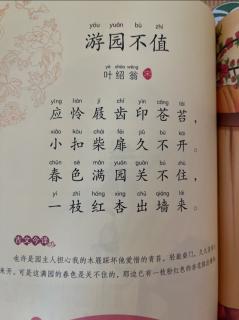 yóu yuán bù zhí
游园不值
yè shào wēng
叶绍翁 宋
yīng lián jī chǐ yìn cāng tái
应怜屐齿印苍苔，
xiǎo kòu chái fēi jiǔ bù kāi
小扣柴扉久不开。
chūn sè mǎn yuán guān bú zhù
春色满园关不住，
yì zhī hóng xìng chū qiáng lái
一枝红杏出墙来。
古文今译
也许是园主人担心我的木屐踩坏他爱惜的青苔，轻轻敲门，久久没有人
来开。可是这满园的春色是关不住的，那边已有一枝粉红色的杏花